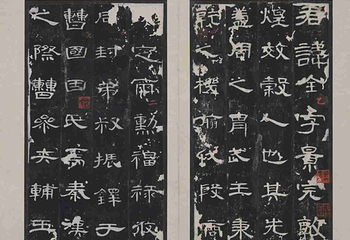 君諱全字景完敦
煌效穀人也其先
蓋周之冑武王秉
乾之機翦伐殷商
定爾勳福祿攸
同封弟叔振鐸于
曹國因氏焉秦漢
之際曹參夾輔王